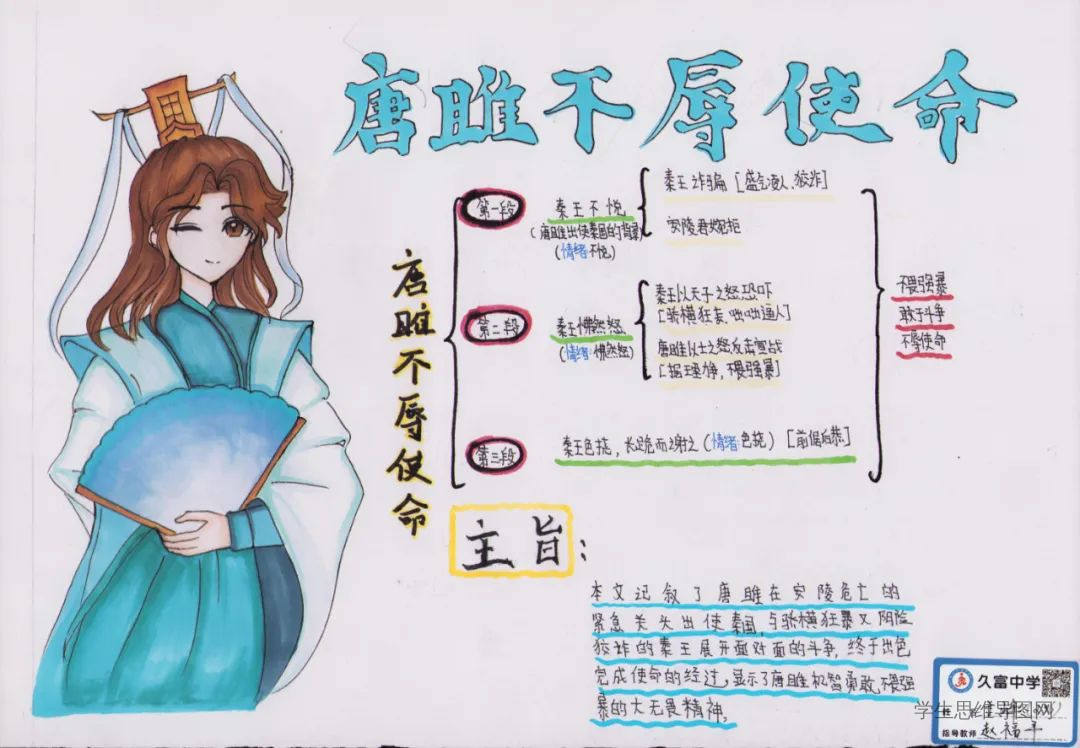 唐雎不辱使命
唐雎不辱使命
第一段
秦王不悦
(唐雎出使秦国的背景)
(情绪:不悦)
秦王诈骗 [盛气凌人、狡诈]
安陵君婉拒
第二段
秦王怫然怒
(情绪:怫然怒)
秦王以天子之怒恐吓
[骄横狂妄、咄咄逼人]
唐雎以士之怒反击宣战
[据理力争,不畏强暴]
第三段
秦王色挠,长跪而谢之(情绪:色挠) [前倨后恭]
不畏强暴
敢于斗争
不辱使命
主旨:
本文记叙了唐雎在安陵危亡的
紧急关头出使秦国,与骄横狂暴又阴险
狡诈的秦王展开面对面的斗争,终于出色
完成使命的经过,显示了唐雎机智勇敢,不畏强
暴的大无畏精神。
久富中学
学生思维导图网
指导教师 赵福平